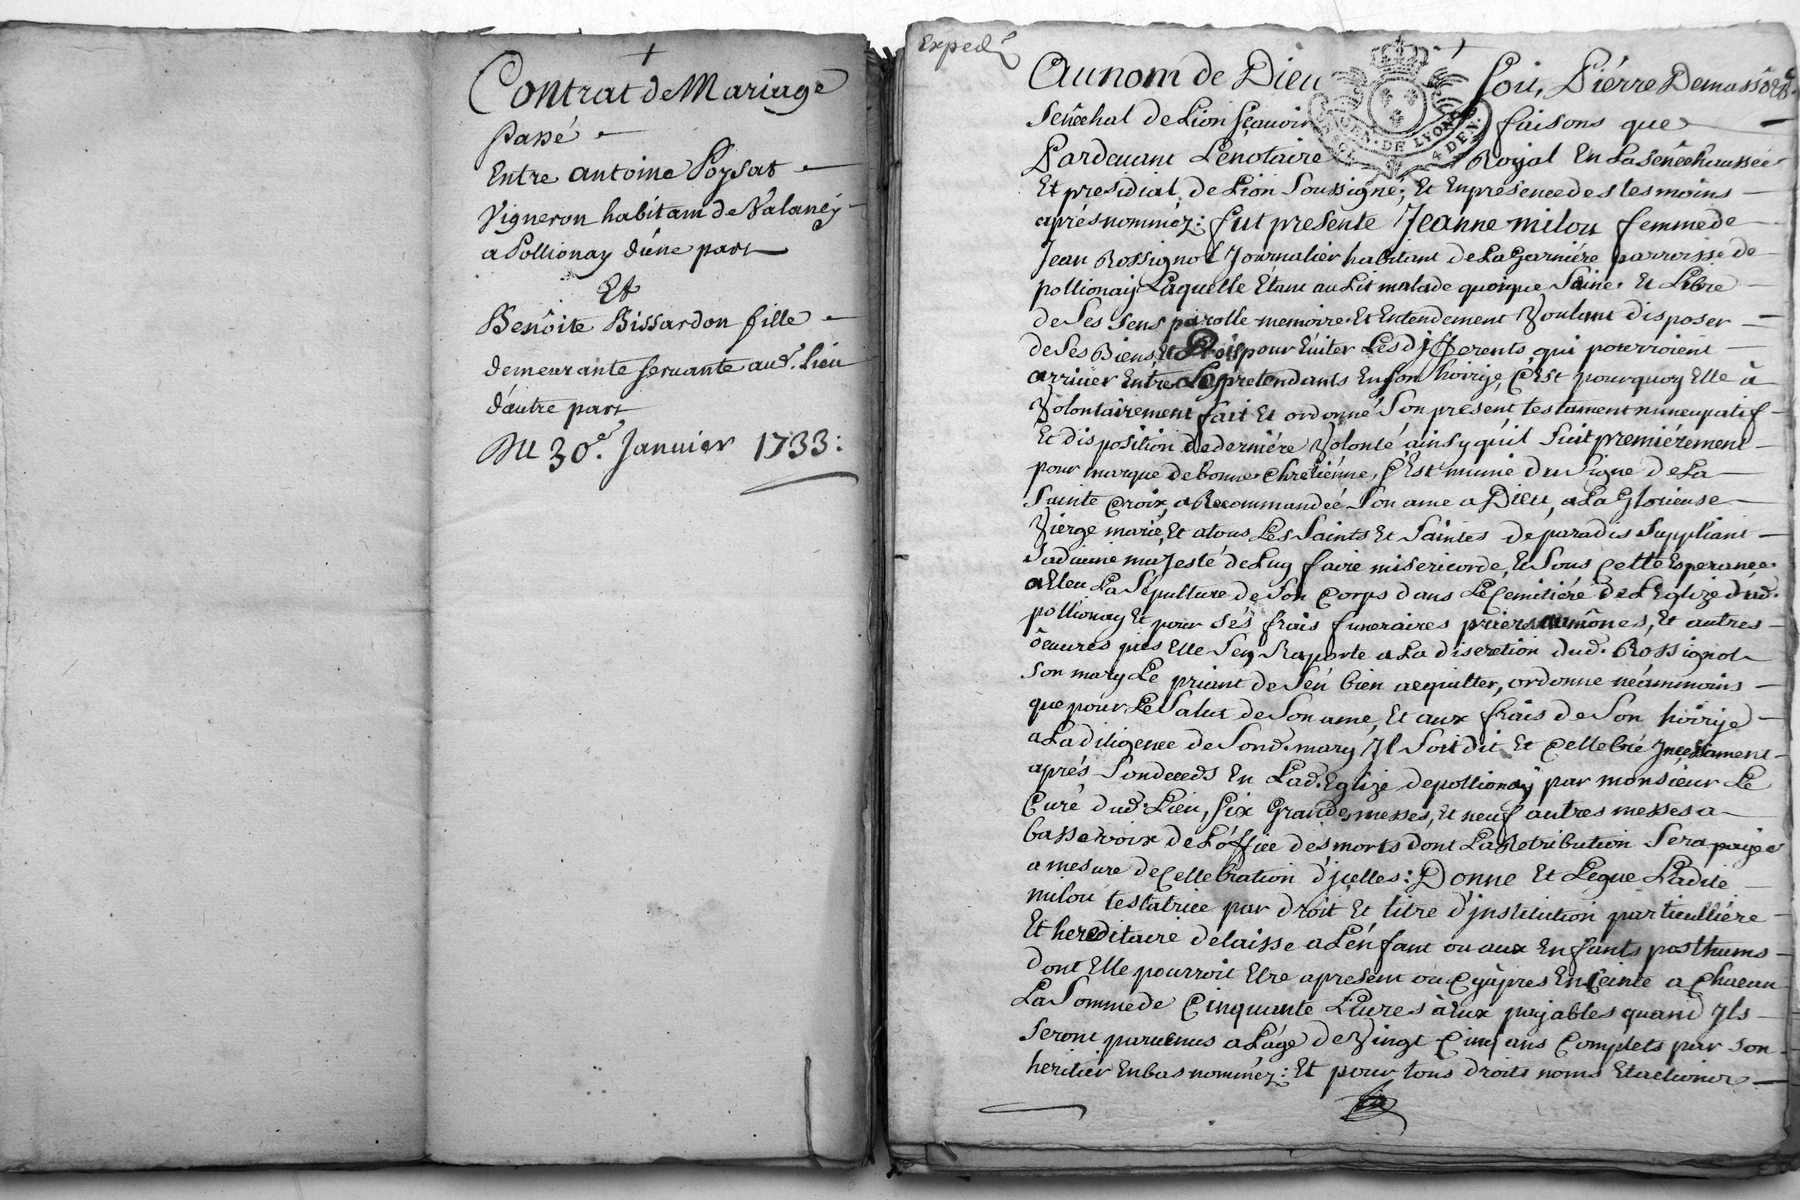 Contrat de Mariage
Passé
Entre antoine Poysat
Vigneron habitant de Valancy
a Pollionay d'une part
Et
Benoite Bissardon fille
demeurante servante aud. Lieu
d'autre part
Du 30e. Janvier 1733:
Exped.
Au nom de Dieu Soit, Piérre Demassô
Senechal de Lion sçavoir faisons que
Pardevant Lenotaire Royal En La senechaussée
Et presidial de Lion Soussigné; Et Enpresence des tesmoins
aprés nommez: fut presente Jeanne milou femme de
Jean Rossignol Journalier habitant de La Garniére parroisse de
pollionay Laquelle Etant au Lit malade quoique Saine Et Libre
de Ses Sens parolle memoire Et Entendement Voulant disposer
de Ses Biens, Et pour Eviter Les differents qui pourroient
arriver Entre Les pretendants En Son hoirije, C'Est pourquoy Elle à
Volontairement fait Et ordonné Son présent testament nuncupatif
Et disposition de derniére Volonté ainsy qu'il Suit premiérement
pour marque de bonne Chretiénne, C'Est munie du Signe de La
Sainte Croix, a Recommandée Son ame a Dieu, a La Glorieuse
Vierge marie, Et a tous Les Saints Et Saintes de paradis Suppliant
Sa divine majesté de Luy faire misericorde, Et Sous Cette Esperance
a Eleu La Sepulture de Son Corps dans Le Cemitiére de L'Eglize dud.
pollionay Et pour sés frais funeraires priéres aumônes, Et autres
ôeuvres pies Elle S'en Raporte a La discretion dud. Rossignol
Son mary Le priant de S'en bien acquitter, ordonne néammoins
que pour Le Salut de Son ame, Et aux frais de Son hoirije
a La diligence de Sond. mary Il Soit dit Et Cellebré Incessament
aprés Son deceds En Lad. Eglize de pollionay par monsieur Le
Curé dud. Lieu, Six Grandes messes, Et neuf autres messes a
basse voix de L'office des morts dont La Retribution Sera payée
a mesure de Cellebration d'jcelles: Donne Et Legue Ladite
milou testatrice par droit Et titre d'jnstitution particulliére
Et hereditaire delaisse a L'enfant ou aux Enfants posthums
dont Elle pourroit Etre a present ou Cyâpres Enceinte a Chacun
La Somme de Cinquante Livres à Eux payables quand Ils
Seront parvenus a L'age de Vingt Cinq ans Complets par son
heritier Enbas nommez: Et pour tous droits noms Et actions